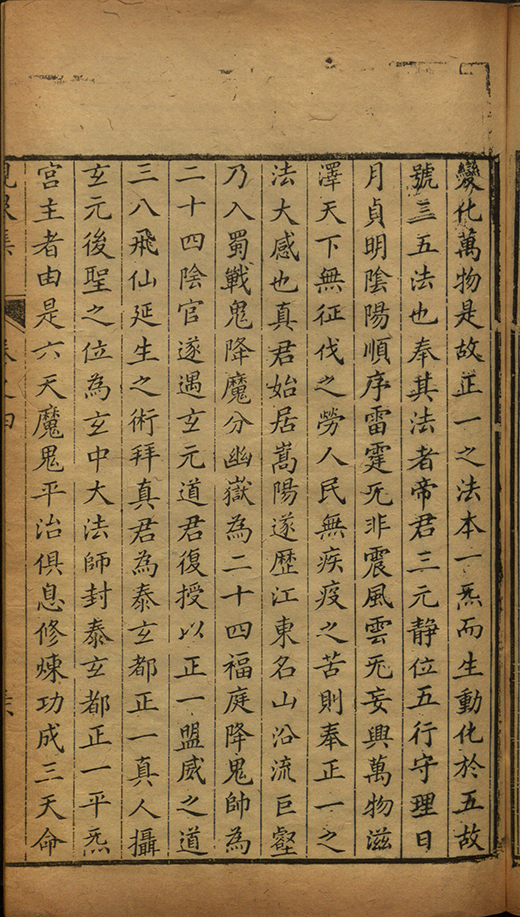 變化萬物是故正一之法本一炁而生動化於五故
號三五法也奉其法者帝君三元静位五行守理日
月貞明陰陽順序雷霆旡非震風雲旡妄興萬物滋
澤天下無征伐之勞人民無疾疫之苦則奉正一之
法大感也真君始居嵩陽遂歷江東名山沿流巨壑
乃入蜀戰鬼降魔分幽嶽為二十四福庭降鬼帥為
二十四陰官遂遇玄元道君復授以正一盟威之道
三八飛仙延生之術拜真君為泰玄都正一真人攝
玄元後聖之位為玄中大法師封泰玄都正一平炁
宮主者由是六天魔鬼平治俱息修煉功成三天命
集
卷之四